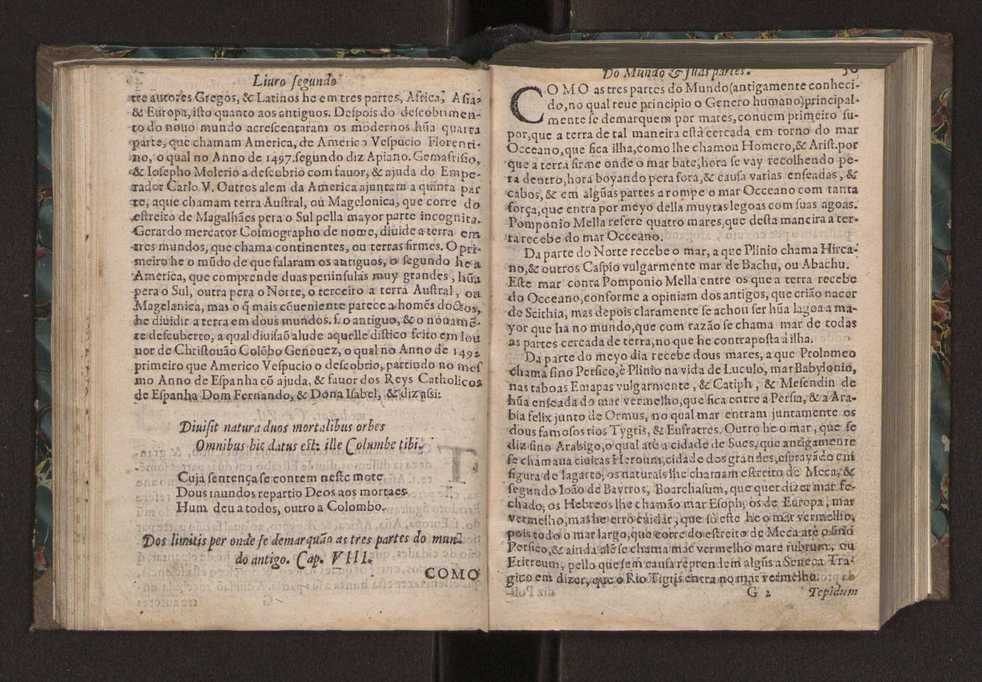 Liuro segundo
tre autores Gregos, & Latinos he em tres partes, Africa, Asia
& Europa, isto quanto aos antiguos. Despois do descobrimen-
to do nouo mundo acrescentaram os modernos hũa quarta
parte, que chamam America, de Americo Vespucio Florenti-
no, o qual no Anno de 1497. segundo diz Apiano. Gemafrisio,
& Iosepho Molerio a descubrio com fauor, & ajuda do Empe-
rador Carlo V. Outros alem da America ajuntam a quinta par
te, aque chamam terra Austral, oú Magelonica, que corre do
estreito de Magalhães pera o Sul pella mayor parte incognita.
Gerardo mercator Cosmographo de nome, diuide a terra em
tres mundos, que chama continentes, ou terras firmes. O pri-
meiro he o mũdo de que falaram os antiguos, o segundo he a
America, que comprende duas peninsulas muy grandes, hũa
pera o Sul, outra pera o Norte, o terceiro a terra Austral, ou
Magelanica, mas o q̃ mais cõueniente parece a homẽs doctos,
he diuidir a terra em dous mundos. Eo antiguo, & o nouamẽ-
te descuberto, a qual diuisaõ alude aquelle distico feito em lou
uor de Christouão Colõbo Genouez, o qual no Anno de 1492
primeiro que Americo Vespucio o descobrio, partindo no mes
mo Anno de Espanha cõ ajuda, & fauor dos Reys Catholicos
de Espanha Dom Fernando, & Dona Isabel, & diz assi:
Diuisit natura duos mortalibus orbes
Omnibus hic datus est: ille Columbe tibi.
Cuja sentença se contem neste mote
Dous mundos repartio Deos aos mortaes
Hum deu a todos, outro a Colombo.
Dos limitis per onde se demarquão as tres partes do mundo
do antigo. Cap. VIII.
COMO
Do Mundo & suas partes.
COMO as tres partes do Mundo (antigamente conheci-
do, no qual teue principio o Genero humano) principal-
mente se demarquem por mares, conuem primeiro su-
por, que a terra de tal maneira està cercada em torno do mar
Occeano, que fica ilha, como lhe chamou Homero, & Arist. por
que a terra firme onde o mar bate, hora se vay recolhendo pe-
ra dentro, hora boyando pera fora, & causa varias enseadas, &
cabos, & em algũas partes a rompe o mar Occeano com tanta
força, que entra por meyo della muytas legoas com suas agoas.
Pomponio Mella refere quatro mares, que desta maneira a ter-
ra recebe do mar Occeano.
Da parte do Norte recebe o mar, a que Plinio chama Hirca-
no, & outros Caspio vulgarmente mar de Bachu, ou Abachu.
Este mar conta Pomponio Mella entre os que a terra recebe
do Oceano, conforme a opiniam dos antigos, que crião nacer
de Scithia, mas depois claramente se achou ser hũa lagoa a ma-
yor que ha no mundo, que com razão se chama mar de todas
as partes cercada de terra, no que he contraposta á ilha.
Da parte do meyo dia recebe dous mares, a que Ptolomeo
chama sino Persico, è Plinio na vida de Luculo, mar Babylonio,
nas taboas & mapas vulgarmente, & Catiph, & Mesendin de
hũa enseada do mar vermelho, que fica entre a Persia, & a Ara-
bia felix junto de Ormus, no qual mar entram juntamente os
dous famosos rios Tygris, & Eufratres. Outro he o mar, que se
diz sino Arabigo, o qual atè a cidade de Sues, que antigamente
se chamaua ciuitas Heroum, cidade dos grandes, esprayãdo em
figura de lagarto, os naturais lhe chamam estreito de Meca, &
segundo Ioão de Bayrros, Boarchasum, que quer dizer mar fe-
chado, os Hebreos lhe chamão mar Esoph, os de Europa, mar
vermelho, mas he erro cuidar, que só este he o mar vermelho,
pois todo o mar largo, que corre do estreito de Meca atè o sino
Persico, & ainda alẽ se chama mar vermelho mare rubrum, ou
Eritreum, pello que sem causa reprendem algũs a Seneca Tra-
gico em dizer, que o Rio Tigris entra no mar vermelho.
G 2 Tepidum